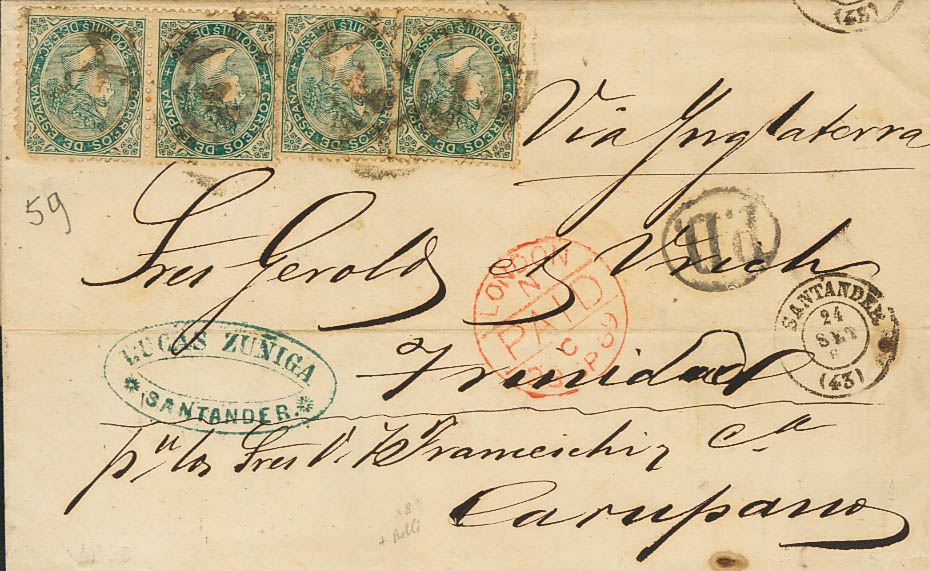 CORREOS DE ESPAÑA 200 MILS DE ESCO
CORREOS DE ESPAÑA 200 MILS DE ESCO
CORREOS DE ESPAÑA 200 MILS DE ESCO
CORREOS DE ESPAÑA 200 MILS DE ESCO
(43)
Via Ynglaterra
59
P.D.
Sres Gerold et Urich
LONDON
PAID
SANTANDER
24
SET
(43)
LUCAS ZUÑIGA
SANTANDER.
Trinidad
pa los Sres Franceschi y Ca
Carupano
+ Bolli